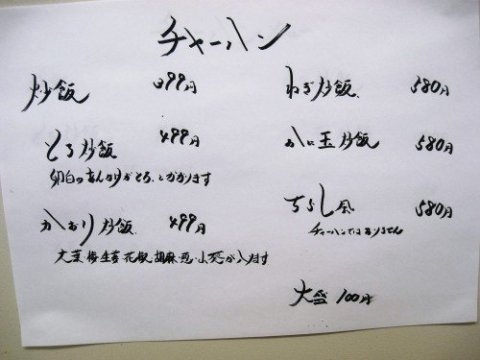 チャーハン
炒飯 399円
とろ炒飯 499円
卵白のあんかけがとろーりかかります
かおり炒飯 499円
大葉 梅 生姜 花椒 胡麻
ねぎ炒飯 580円
かに玉炒飯 580円
ちらし風 580円
チャーハンではありません
大盛 100円